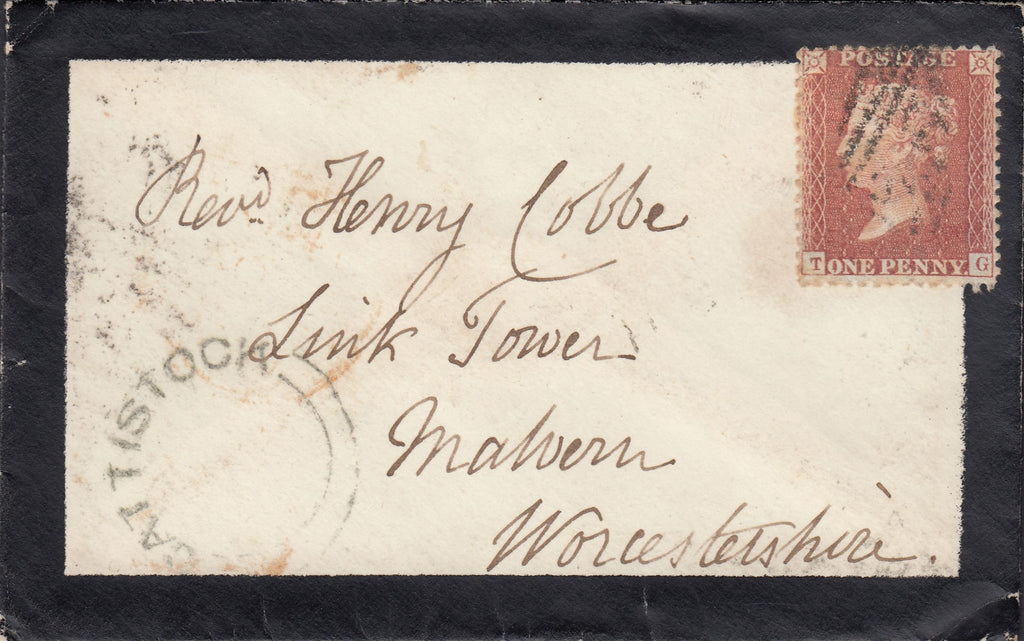 POSTAGE
T ONE PENNY. G
Revd. Henry Cobbe
Link Tower
Malvern
Worcestershire.
CATTISTOCK